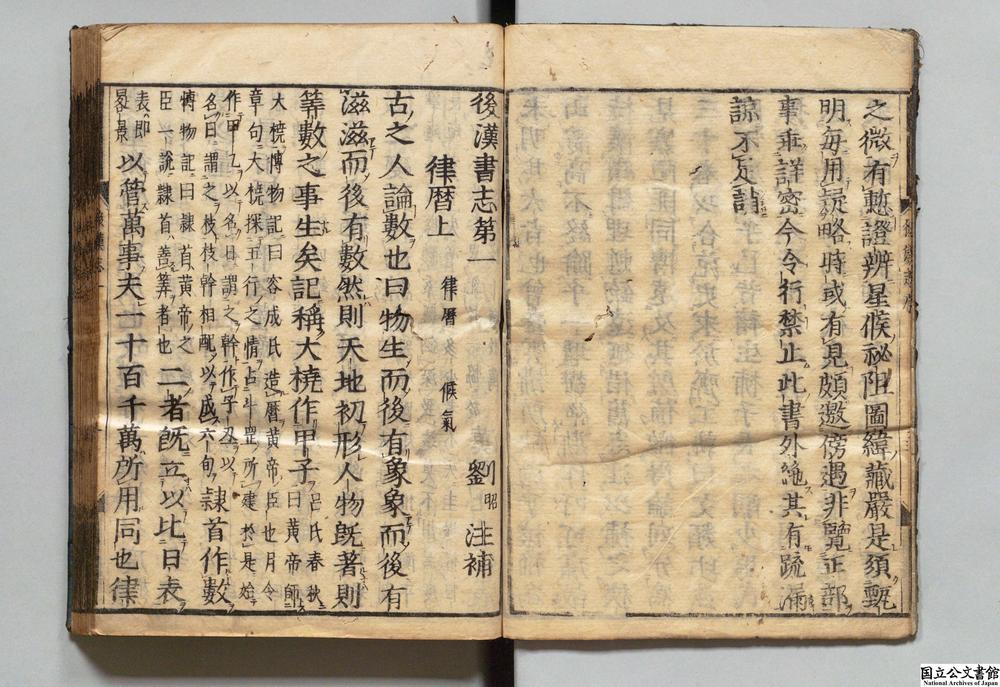 之微有慙證辨星候祕阻圖緯藏嚴是須甄
明每用疑略時或有見頗邀傍遇非覽正部
事乖詳密今令行禁止此書外絶其有疏漏
諒不足誚
後漢書志第一
律曆上 律曆 候氣 劉昭注補
古之人論數也曰物生而後有象象而後有
滋滋而後有數然則天地初形人物旣著則
筭數之事生矣記稱大橈作甲子
呂氏春秋曰黃帝師
大橈博物記曰容成氏造曆黃帝臣也月令
章句大橈探五行之情占斗罡所建於是始
作甲乙以名日謂之幹作子丑以
名日謂之枝枝幹相配以成六旬
隸首作數
博物記曰隸首黃帝之
臣一說隸首善筭者也
二者旣立以比日表
表卽
晷景
以管萬事夫一十百千萬所用同也律
国立公文書館
National Archives of Japan